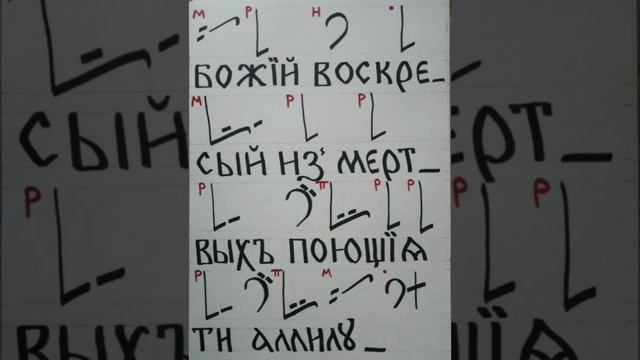 м р н
божїй воскре_
м р р
сый из̾ мерт_
р п р р
выхъ поющїѧ
р п м
ти аллилꙋ_